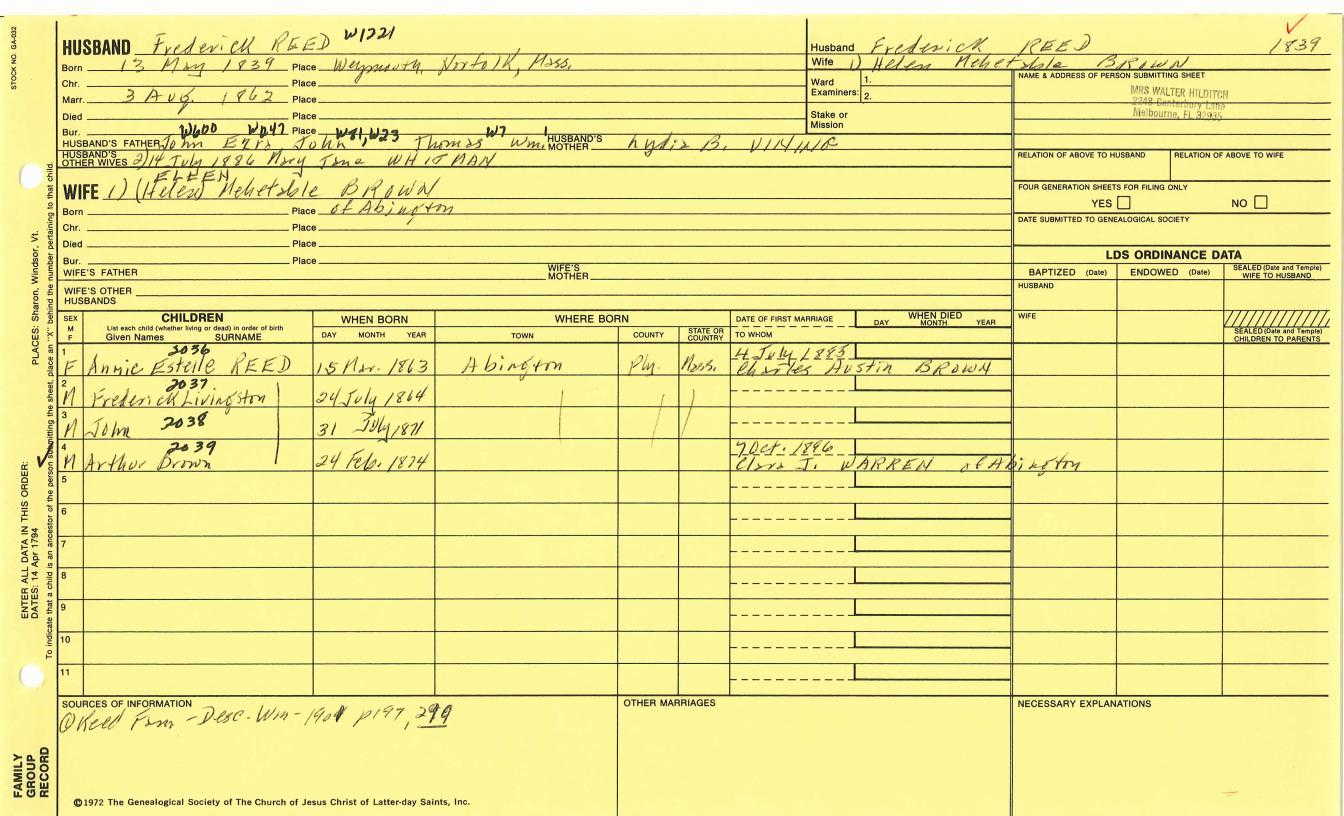 STOCK NO. GA-032
HUSBAND Frederick REED W1221
Born 13 May 1839 Place Weymouth, Norfolk, Mass.
Chr. Place
Marr. 3 Aug. 1862 Place
Died Place
Bur. Place
W600 W247 W81, W23 W7 1
HUSBAND'S FATHER John Ezra John Thomas Wm. HUSBAND'S MOTHER Lydia B. VINING
HUSBAND'S OTHER WIVES 2) 14 July 1886 Mary Jane WHITMAN
ELLEN
WIFE 1) (Helen) Mehetable BROWN
Born Place of Abington
Chr. Place
Died Place
Bur. Place
WIFE'S FATHER WIFE'S MOTHER
WIFE'S OTHER HUSBANDS
Husband Frederick REED 1839
Wife 1) Helen Mehetable BROWN
Ward Examiners: 1.
2.
Stake or Mission
NAME & ADDRESS OF PERSON SUBMITTING SHEET
MRS WALTER HILDITCH
2248 Canterbury Lane
Melbourne, FL 32935
RELATION OF ABOVE TO HUSBAND RELATION OF ABOVE TO WIFE
FOUR GENERATION SHEETS FOR FILING ONLY
YES NO
DATE SUBMITTED TO GENEALOGICAL SOCIETY
LDS ORDINANCE DATA
BAPTIZED (Date) ENDOWED (Date) SEALED (Date and Temple) WIFE TO HUSBAND
HUSBAND
WIFE
SEALED (Date and Temple) CHILDREN TO PARENTS
SEX M F CHILDREN WHEN BORN WHERE BORN DATE OF FIRST MARRIAGE WHEN DIED
List each child (whether living or dead) in order of birth
Given Names SURNAME DAY MONTH YEAR TOWN COUNTY STATE OR COUNTRY TO WHOM DAY MONTH YEAR
1 2036 4 July 1885
F Annie Estelle REED 15 Mar. 1863 Abington Ply. Mass. Charles Austin BROWN
2 2037
M Frederick Livingston 24 July 1864
3
M John 2038 31 July 1871
4 2039 7 Oct. 1896
M Arthur Brown 24 Feb. 1874 Clara J. WARREN of Abington
5
6
7
8
9
10
11
SOURCES OF INFORMATION OTHER MARRIAGES NECESSARY EXPLANATIONS
Reed Fam - Desc. Wm - 1901 p197, 299
©1972 The Genealogical Society of The Church of Jesus Christ of Latter-day Saints, Inc.
FAMILY GROUP RECORD
ENTER ALL DATA IN THIS ORDER:
DATES: 14 Apr 1794
PLACES: Sharon, Windsor, Vt.
To indicate that a child is an ancestor of the person submitting the sheet, place an "X" behind the number pertaining to that child.